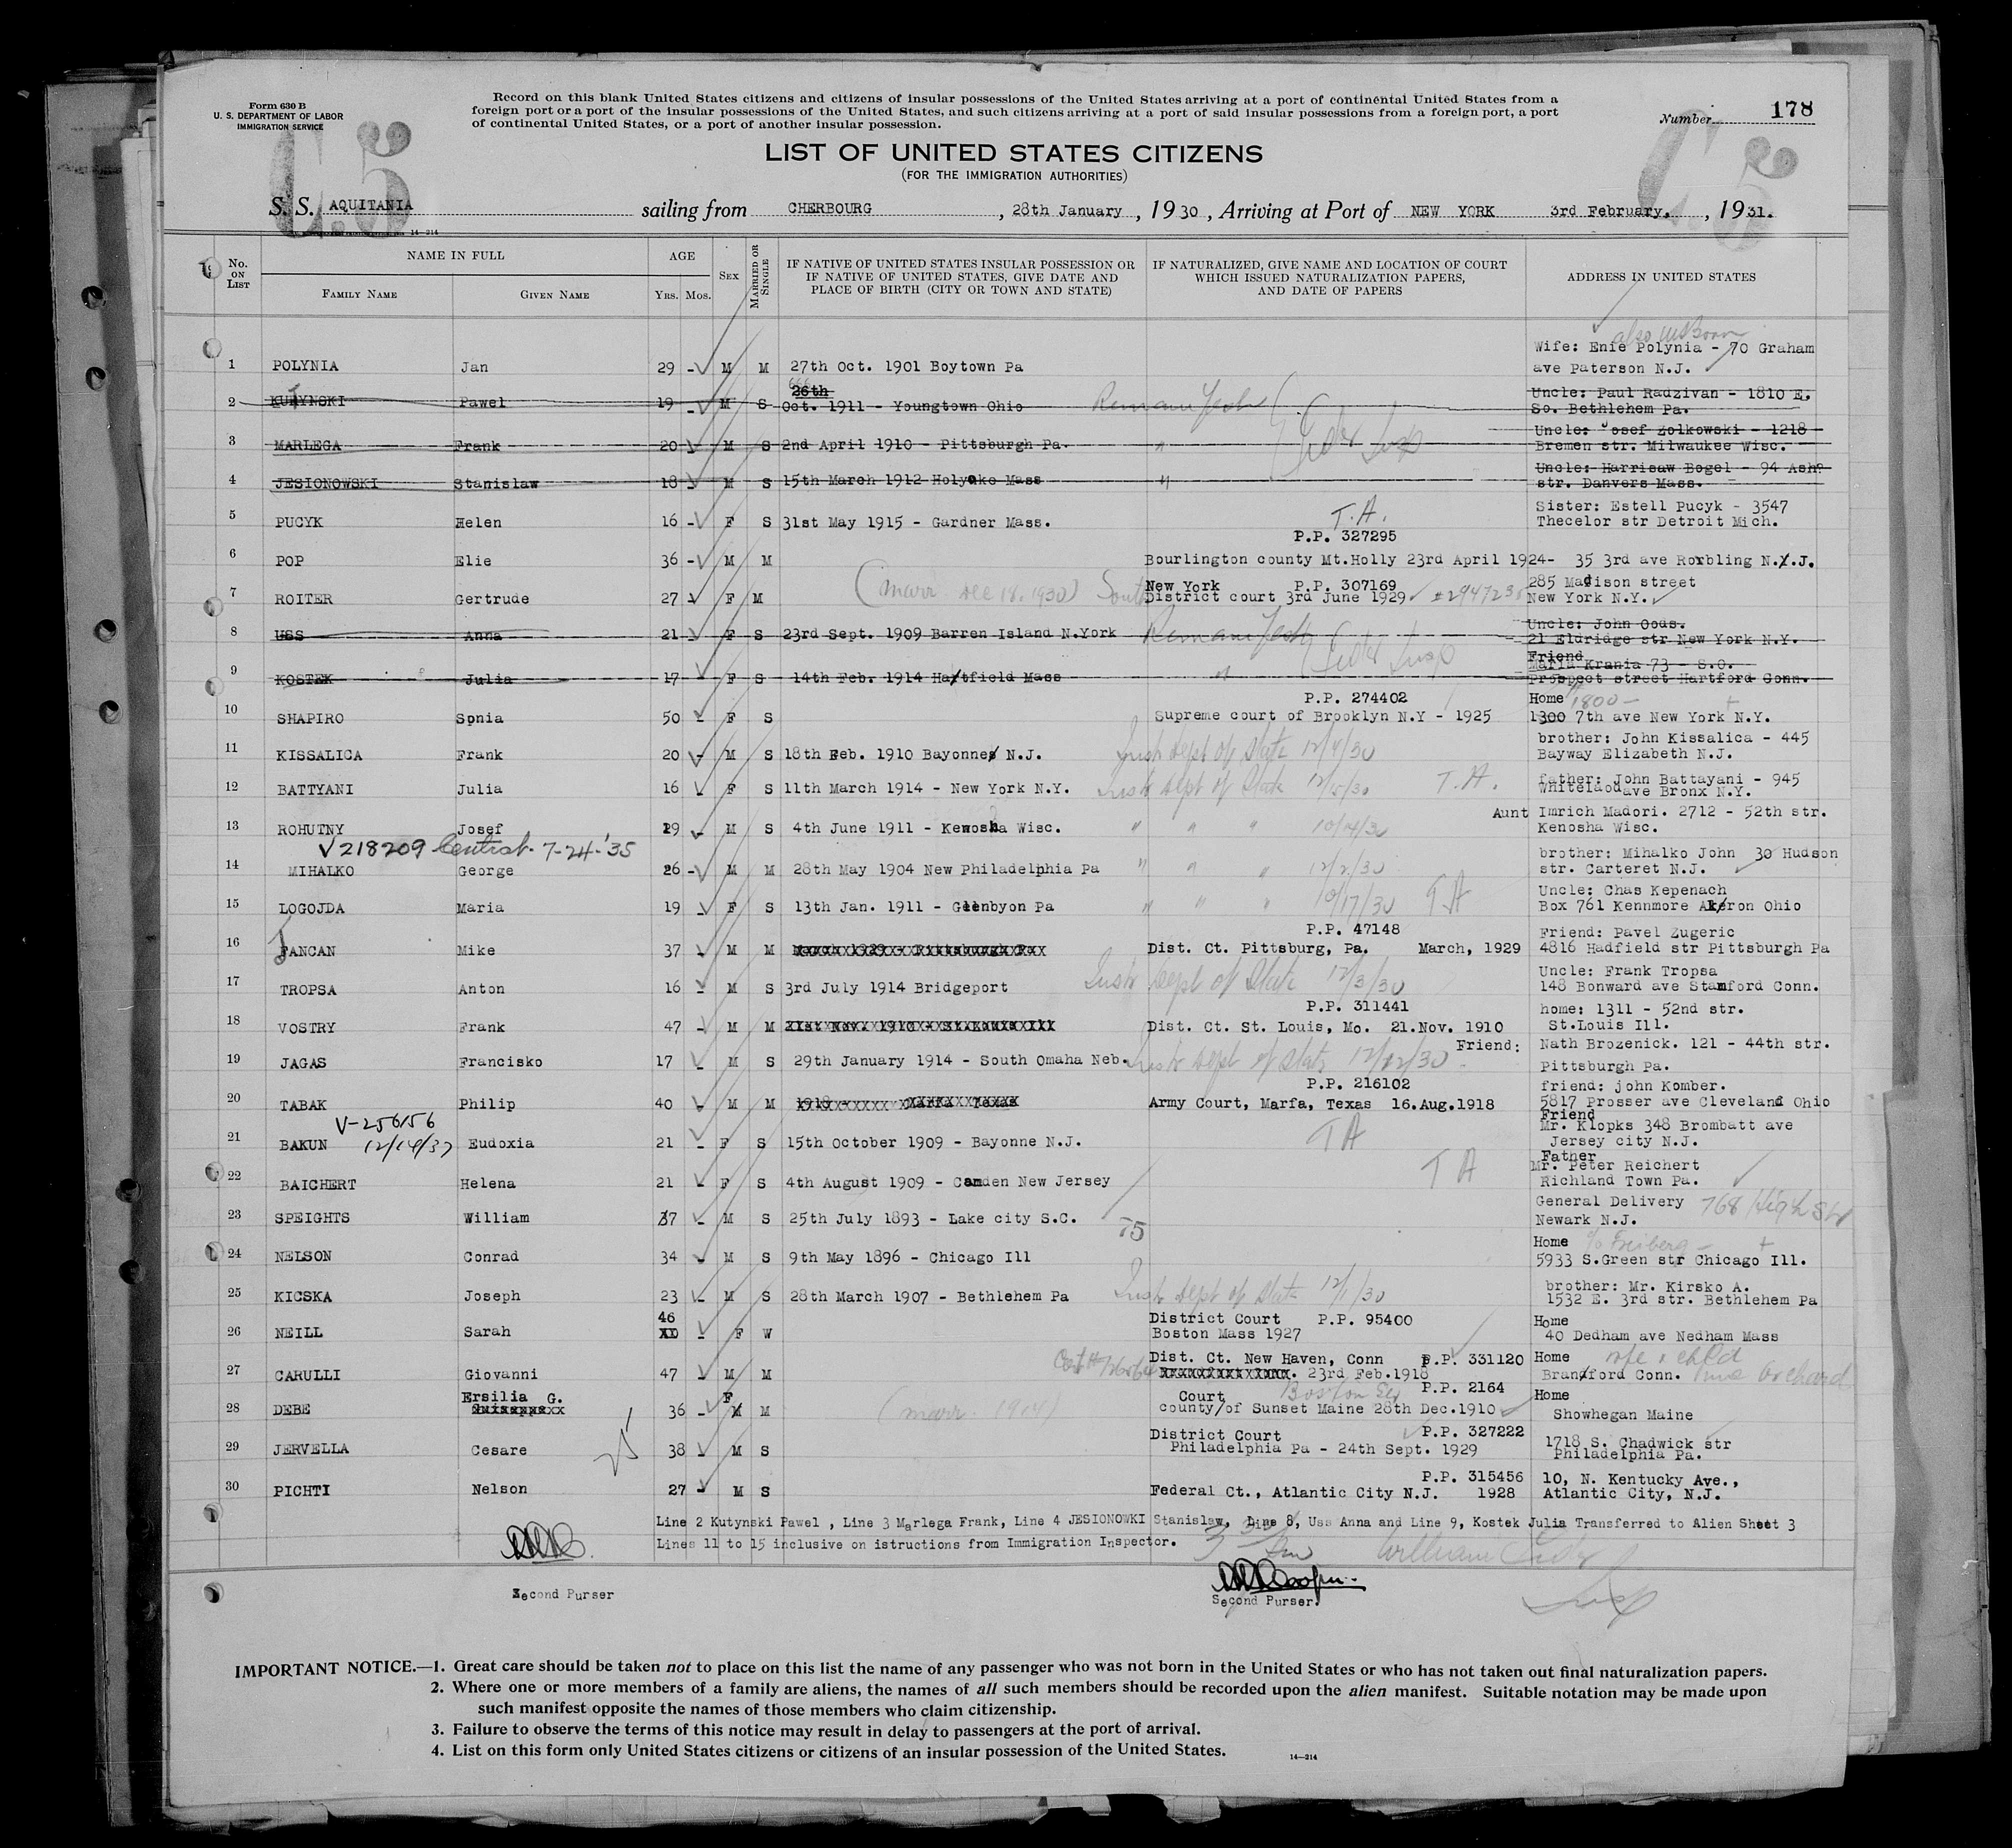 Form 630 B
U. S. DEPARTMENT OF LABOR
IMMIGRATION SERVICE
Record on this blank United States citizens and citizens of insular possessions of the United States arriving at a port of continental United States from a
foreign port or a port of the insular possessions of the United States, and such citizens arriving at a port of said insular possessions from a foreign port, a port
of continental United States, or a port of another insular possession.
Number 178
C 5
C 5
LIST OF UNITED STATES CITIZENS
(FOR THE IMMIGRATION AUTHORITIES)
S. S. AQUITANIA sailing from CHERBOURG, 28th January, 1930, Arriving at Port of NEW YORK 3rd February, , 1931.
14-214
No. ON LIST
NAME IN FULL
FAMILY NAME
GIVEN NAME
AGE
YRS. MOS.
SEX
MARRIED OR SINGLE
IF NATIVE OF UNITED STATES INSULAR POSSESSION OR
IF NATIVE OF UNITED STATES, GIVE DATE AND
PLACE OF BIRTH (CITY OR TOWN AND STATE)
IF NATURALIZED, GIVE NAME AND LOCATION OF COURT
WHICH ISSUED NATURALIZATION PAPERS,
AND DATE OF PAPERS
ADDRESS IN UNITED STATES
also US Born
Wife: Enie Polynia - 70 Graham
1 POLYNIA Jan 29 - M M 27th Oct. 1901 Boytown Pa ave Paterson N.J.
26th Uncle: Paul Radzivan - 1810 E.
2 Pawel 19 - M S Oct. 1911 - Youngtown Ohio So. Bethlehem Pa.
Uncle: Josef Zolkowski - 1218
3 MARLEGA Frank 20 - M S 2nd April 1910 - Pittsburgh Pa. " Bremen str. Milwaukee Wisc.
Uncle: Harrisaw Bogel - 94 Ash
4 JESIONOWSKI Stanislaw 18 - M S 15th March 1912 Holyoke Mass " str. Danvers Mass.
Sister: Estell Pucyk - 3547
5 PUCYK Helen 16 - F S 31st May 1915 - Gardner Mass. T.A. Thecelor str Detroit Mich.
P.P. 327295
6 POP Elie 36 - M M Bourlington county Mt.Holly 23rd April 1924- 35 3rd ave Roxbling N.J.
New York P.P. 307169 285 Madison street
7 ROITER Gertrude 27 F M (marr Dec 18. 1930) South District court 3rd June 1929 New York N.Y.
Uncle: John Oods.
8 USS Anna 21 - F S 23rd Sept. 1909 Barren Island N.York 21 Eldridge str New York N.Y.
Friend
Maria Krania 73 - S.O.
9 KOSTEK Julia 17 - F S 14th Feb. 1914 Hatfield Mass " Prospect street Hartford Conn.
P.P. 274402 Home 1800 -
10 SHAPIRO Sonia 50 - F S Supreme court of Brooklyn N.Y - 1925 1300 7th ave New York N.Y.
brother: John Kissalica - 445
11 KISSALICA Frank 20 - M S 18th Feb. 1910 Bayonne N.J. Instr Dept of State 12/4/30 Bayway Elizabeth N.J.
father: John Battayani - 945
12 BATTYANI Julia 16 F S 11th March 1914 - New York N.Y. Instr Dept of State 12/15/30 T.A. ave Bronx N.Y.
Aunt Imrich Madori. 2712 - 52th str.
13 ROHUTNY Josef 19 - M S 4th June 1911 - Kenosha Wisc. " " " 10/14/30 Kenosha Wisc.
V218209 Central. 7-24-'35
brother: Mihalko John 30 Hudson
14 MIHALKO George 26 - M M 28th May 1904 New Philadelphia Pa " " " 12/2/30 str. Carteret N.J.
Uncle: Chas Kepenach
15 LOGOJDA Maria 19 - F S 13th Jan. 1911 - Glenbyon Pa " " " 10/17/30 TA Box 761 Kennmore Akron Ohio
P.P. 47148 Friend: Pavel Zugeric
16 JANCAN Mike 37 - M M March 1929 - Pittsburgh Pa Dist. Ct. Pittsburg, Pa. March, 1929 4816 Hadfield str Pittsburgh Pa
Uncle: Frank Tropsa
17 TROPSA Anton 16 - M S 3rd July 1914 Bridgeport Instr Dept of State 12/3/30 148 Bonward ave Stamford Conn.
P.P. 311441 home: 1311 - 52nd str.
18 VOSTRY Frank 47 - M M 21st Nov. 1910 - St.Louis Ill Dist. Ct. St. Louis, Mo. 21.Nov. 1910 St.Louis Ill.
Friend: Nath Brozenick. 121 - 44th str.
19 JAGAS Francisko 17 M S 29th January 1914 - South Omaha Neb. Instr Dept of State 12/12/30 Pittsburgh Pa.
P.P. 216102 friend: john Komber.
20 TABAK Philip 40 - M M 1918 - Marfa Texas Army Court, Marfa, Texas 16.Aug.1918 5817 Prosser ave Cleveland Ohio
V-256156
12/14/37
Friend
Mr. Klopks 348 Brombatt ave
21 BAKUN Eudoxia 21 - F S 15th October 1909 - Bayonne N.J. TA Jersey city N.J.
Father
Mr. Peter Reichert
22 BAICHERT Helena 21 - F S 4th August 1909 - Camden New Jersey TA Richland Town Pa.
General Delivery 768 High St
23 SPEIGHTS William 37 - M S 25th July 1893 - Lake city S.C. Newark N.J.
75
Home c/o Freiberg -
24 NELSON Conrad 34 - M S 9th May 1896 - Chicago Ill 5933 S.Green str Chicago Ill.
brother: Mr. Kirsko A.
25 KICSKA Joseph 23 - M S 28th March 1907 - Bethlehem Pa Instr Dept of State 12/1/30 1532 E. 3rd str. Bethlehem Pa
46 District Court P.P. 95400 Home
26 NEILL Sarah - F W Boston Mass 1927 40 Dedham ave Nedham Mass
Dist. Ct. New Haven, Conn P.P. 331120 Home wfe & child
27 CARULLI Giovanni 47 - M M 23rd Feb.1918 Brandford Conn.
Ersilia G. Court P.P. 2164 Home
28 DEBE 36 - F M (marr. 1904) county/of Sunset Maine 28th Dec.1910 Showhegan Maine
District Court P.P. 327222 1718 S. Chadwick str
29 JERVELLA Cesare 38 - M S Philadelphia Pa - 24th Sept. 1929 Philadelphia Pa.
P.P. 315456 10, N. Kentucky Ave.,
30 PICHTI Nelson 27 - M S Federal Ct., Atlantic City N.J. 1928 Atlantic City, N.J.
Line 2 Kutynski Pawel , Line 3 Marlega Frank, Line 4 JESIONOWKI Stanislaw, Line 8, Uss Anna and Line 9, Kostek Julia Transferred to Alien Sheet 3
Lines 11 to 15 inclusive on istructions from Immigration Inspector.
Second Purser
Second Purser.
IMPORTANT NOTICE.—1. Great care should be taken not to place on this list the name of any passenger who was not born in the United States or who has not taken out final naturalization papers.
2. Where one or more members of a family are aliens, the names of all such members should be recorded upon the alien manifest. Suitable notation may be made upon
such manifest opposite the names of those members who claim citizenship.
3. Failure to observe the terms of this notice may result in delay to passengers at the port of arrival.
4. List on this form only United States citizens or citizens of an insular possession of the United States.
14—214